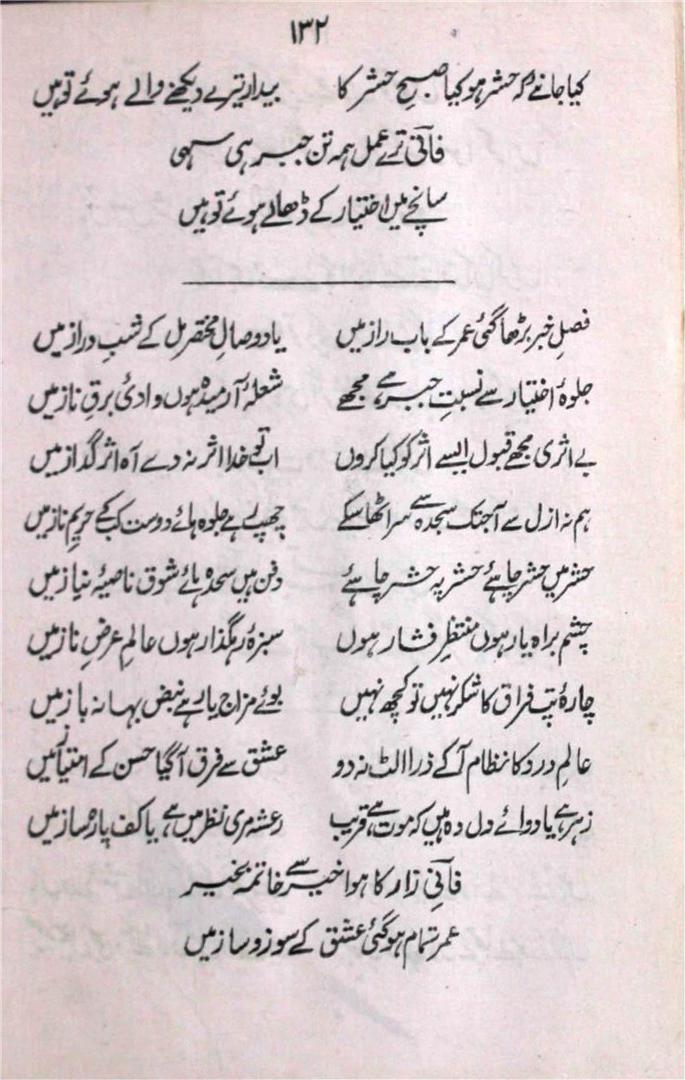 ۱۳۲
کیا جانئے کہ حشر ہو کیا صبحِ حشر کا بیدار تیرے دیکھنے والے ہوئے تو ہیں
فانیؔ ترے عمل ہمہ تن جبر ہی سہی
سانچے میں اختیار کے ڈھالے ہوئے تو ہیں
فصلِ خبر بڑھا گئی عمر کے باب راز میں یاد وصالِ مختصر مل کے شبِ دراز میں
جلوۂ اختیار سے نسبتِ جبر ہے مجھے شعلۂ آرمیدہ ہوں وادیٔ برقِ ناز میں
بے اثری مجھے قبول ایسے اثر کو کیا کروں اب تو خدا اثر نہ دے آہ اثر گداز میں
ہم نہ ازل سے آجتک سجدہ سے سر اٹھا سکے چھپ رہے جلوہ ہائے دوست کب کے حریم ناز میں
حشر میں حشر چاہئے حشر پہ حشر چاہئے دفن ہیں سجدہ ہائے شوق ناصیۂ نیاز میں
چشم براہ یار ہوں منتظرِ فشار ہوں سبزۂ رہگذار ہوں عالمِ عرضِ ناز میں
چارۂ تپ فراق کا شکر نہیں تو کچھ نہیں بوئے مزاج یار ہے نبض بہانہ باز میں
عالمِ درد کا نظام آکے ذرا الٹ نہ دو عشق سے فرق آگیا حسن کے امتیاز میں
زہر ہے یا دوائے دل دہ ہیں کہ موت ہے قریب رعشہ مری نظر میں ہے یا کف چارہ ساز میں
فانیؔ زار کا ہوا خیر سے خاتمہ بخیر
عمر تمام ہو گئی عشق کے سوز و ساز میں